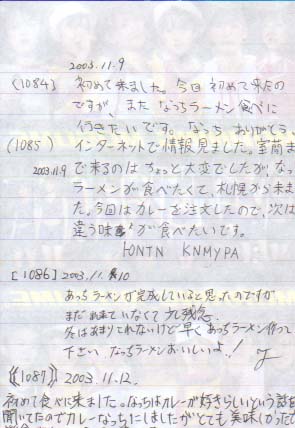 2003.11.9
(1084) 初めて来ました。今日初めて来たの
ですが、また なっちラーメン食べに
行きたいです。なっち ありがとう。
(1085) インターネットで情報見ました。室蘭ま
2003.11.9 で来るのは ちょっと大変でしたが、なっ
ラーメンが食べたくて、札幌から来ま
た。今回はカレーを注文したので、次は
違う味が食べたいです。
HONTN KNMYPA
[1086] 2003.11.10
あっちラーメンが完成していると思ったのですが
まだ出来ていなくて 残念.
冬はあまりこれないけど早く あっちラーメン作って
下さい なっちラーメンおいしいよ.!
《1087》 2003.11.12.
初めて食べに来ました。なっちはカレーが好きらしいという話を
聞いてたのでカレーなっちにしましたがとても美味しかったで